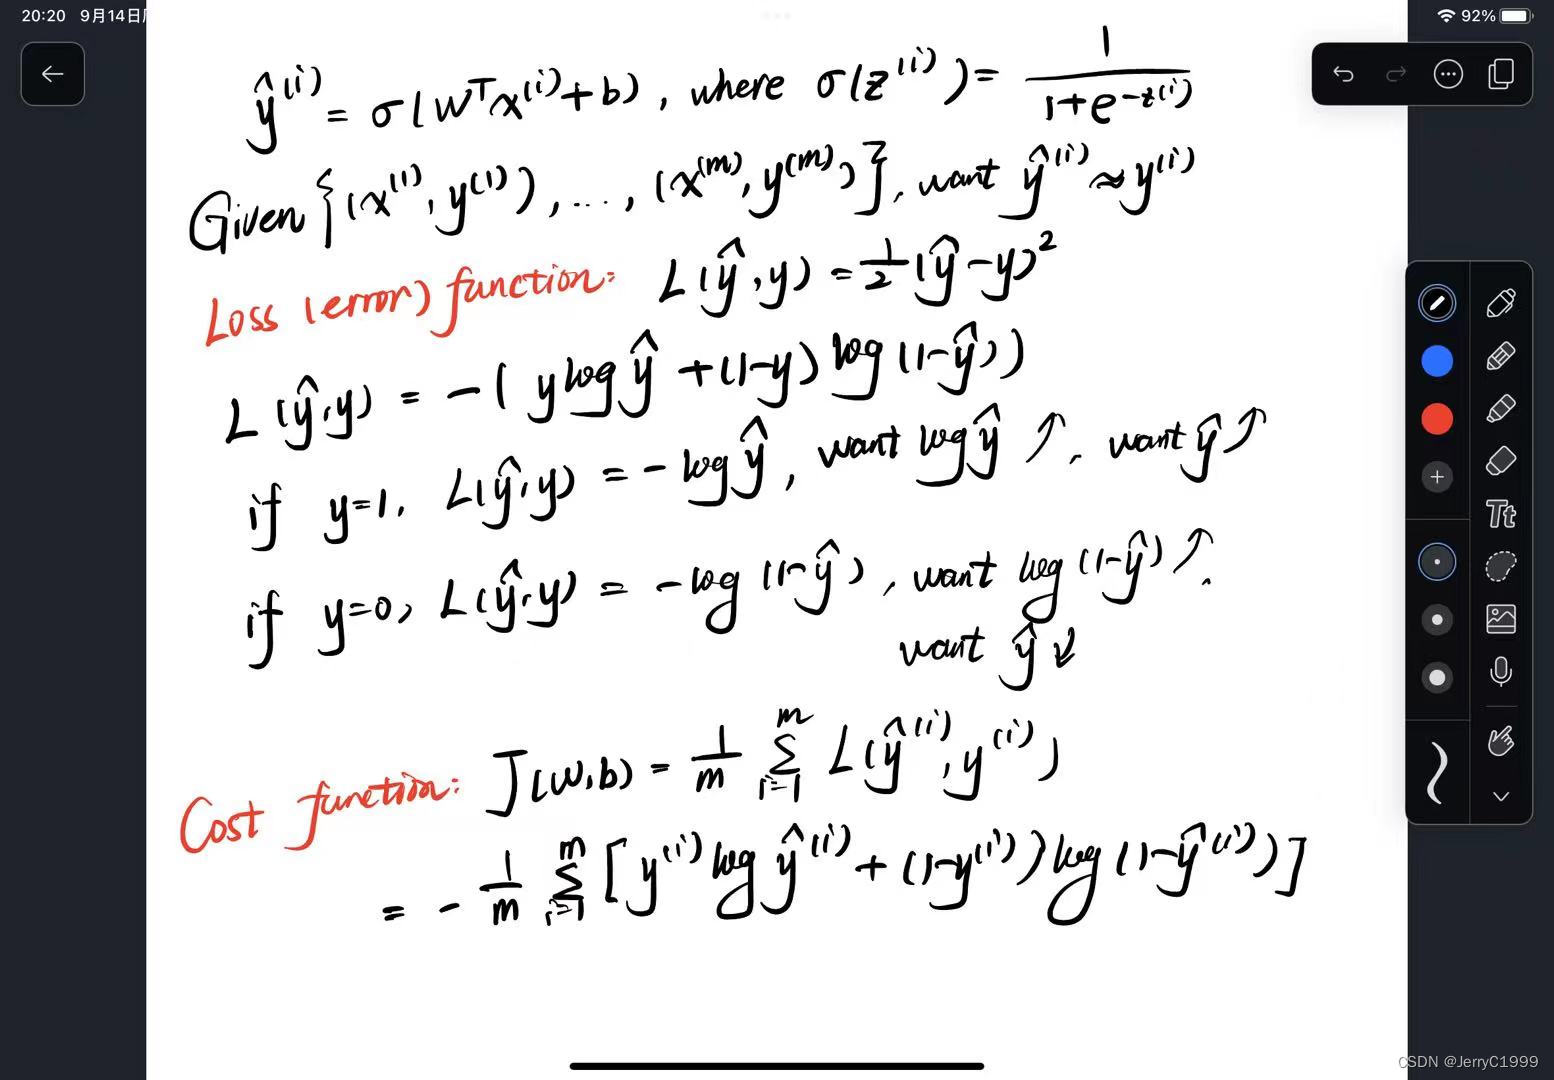 20:20 9月14日
92%
ŷ⁽ⁱ⁾ = σ(wᵀx⁽ⁱ⁾+b), where σ(z⁽ⁱ⁾) = 1/(1+e^(-z⁽ⁱ⁾))
Given {(x⁽¹⁾, y⁽¹⁾), ..., (x⁽ᵐ⁾, y⁽ᵐ⁾)}, want ŷ⁽ⁱ⁾ ≈ y⁽ⁱ⁾
Loss (error) function: L(ŷ, y) = 1/2 (ŷ-y)²
L(ŷ, y) = -(y log ŷ + (1-y) log (1-ŷ))
if y=1, L(ŷ, y) = -log ŷ, want log ŷ ↗, want ŷ ↗
if y=0, L(ŷ, y) = -log (1-ŷ), want log (1-ŷ) ↗.
want ŷ ↙
Cost function: J(w, b) = 1/m Σ_{i=1}^{m} L(ŷ⁽ⁱ⁾, y⁽ⁱ⁾)
= - 1/m Σ_{i=1}^{m} [y⁽ⁱ⁾ log ŷ⁽ⁱ⁾ + (1-y⁽ⁱ⁾) log (1-ŷ⁽ⁱ⁾)]
Tt
CSDN @JerryC1999